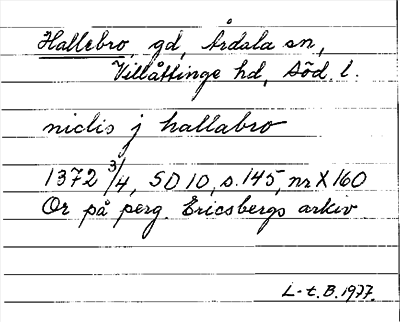 Hallebro, gd, Årdala sn,
Villåttinge hd, Söd. l.
niclis j hallabro
1372 3/4, SD 10, s. 145, nr X 160
Or på perg. Ericsbergs arkiv
L-t. B. 1977.